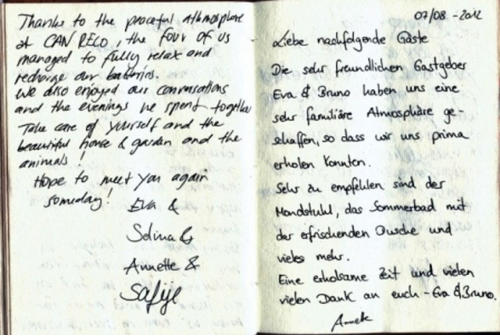 Thanks to the peaceful athmosphere
at CAN RELO, the four of us
managed to fully relax and
recharge our batteries.
We also enjoyed our conversations
and the evenings we spent together
Take care of yourself and the
beautiful house & garden and the
animals!
Hope to meet you again
someday!
Eva &
Selina &
Annette &
Safije
07/08 - 2012
Liebe nachfolgende Gäste
Die sehr freundlichen Gastgeber
Eva & Bruno haben uns eine
sehr familiäre Atmosphäre ge-
schaffen, so dass wir uns prima
erholen konnten.
Sehr zu empfehlen sind der
Mondstuhl, das Sommerbad mit
der erfrischenden Dusche und
vieles mehr.
Eine erholsame Zeit und vielen
vielen Dank an euch - Eva & Bruno.
Annette